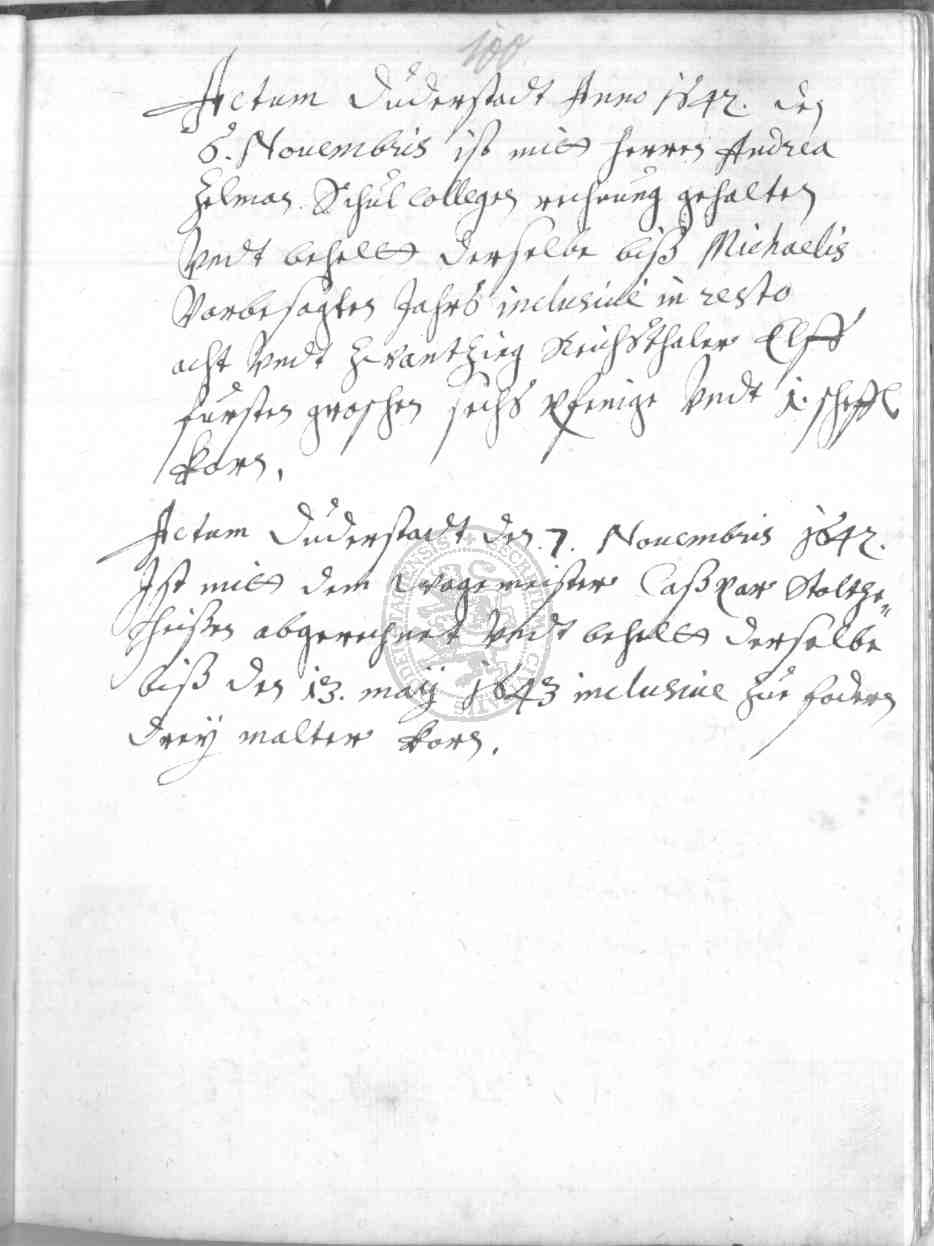 100
Actum Duderstadt Anno 1642. den
6. Novembris ist mitt herren Andrea
Helman Schul Collegen rechnung gehalten
Vndt behelt derselbe biß Michaelis
Vorbesagten Jahrs inclusive in resto
acht Vndt Zwantzieg Reichsthaler Elff
fursten groschen sechs pfenige Vndt 1. scheffl
korn.
Actum Duderstadt den 7. Novembris 1642.
Ist mitt dem Wagemeister Caßpar Stoltze-
abgerechnet Vndt behelt derselbe
biß den 13. maij 1643 inclusive zue fodern
drey malter korn.